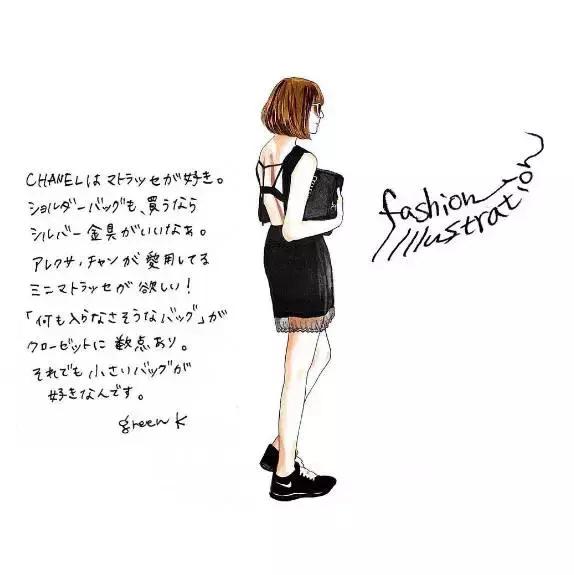 CHANELはマトラッセが好き。
ショルダーバッグも、買うなら
シルバー金具がいいなぁ。
アレクサ・チャンが愛用してる
ミニマトラッセが欲しい！
「何も入らなさそうなバッグ」が
クローゼットに数点あり。
それでも小さいバッグが
好きなんです。
green K
fashion
illustration